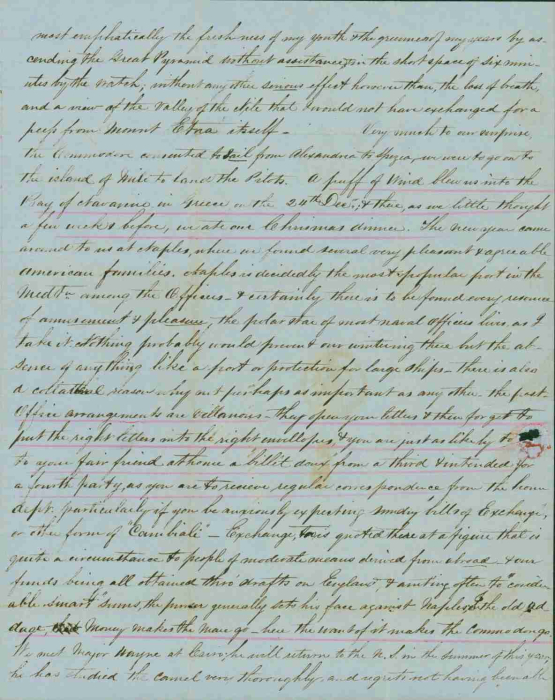 most emphatically the freshness of my youth & the greenness of my years by as-
cending the Great Pyramid without assistance, in the short space of six min-
utes by the watch; without any other serious effect however than, the loss of breath,
and a view of the Valley of the Nile that I would not have exchanged for a
peep from Mount Etna itself - Very much to our surprise,
the Commodore consented to Sail from Alexandria to Spezia, we were to go on to
the island of Milo to land the Pilots. A puff of Wind blew us into the
Bay of Navarino in Greece on the 24th Dec; & there, as we little thought
a few weeks before, we ate our Christmas dinner. The new year came
around to us at Naples, where we found several very pleasant & agreeable
American families. Naples is decidedly the most popular port in the
Medtn among the Officers - & certainly there is to be found every resource
of amusement & pleasure, the polar star of most naval officers lives, as I
take it. Nothing probably would prevent our wintering there but the ab-
sence of any thing like a port or protection for large ships - there is also
a collateral reason why not perhaps as important as any other the post
Office arrangements are villanous - they open your letters & then forget to
put the right letters into the right envellopes & you are just as likely to
to your fair friend at home a billet doux from a third & intended for
a fourth party, as you are to receive regular correspondence from the home
dept. particularly if you be anxiously expecting sundry bills of Exchange,
or other form of "Cambiale" - Exchange, too is quoted there at a figure that is
quite a circumstance to people of moderate means derived from abroad - & our
funds being all obtained thro drafts on England & amtng often to "consider-
able smart" sums, the purser generally sets his face against Naples & the old ad
dage, Money makes the mare go - here the want of it makes the commodore go.
We met Major Wayne at Cairo, he will return to the U.S. in the summer of this year
he has studied the camel very thoroughly, and regrets not having been able